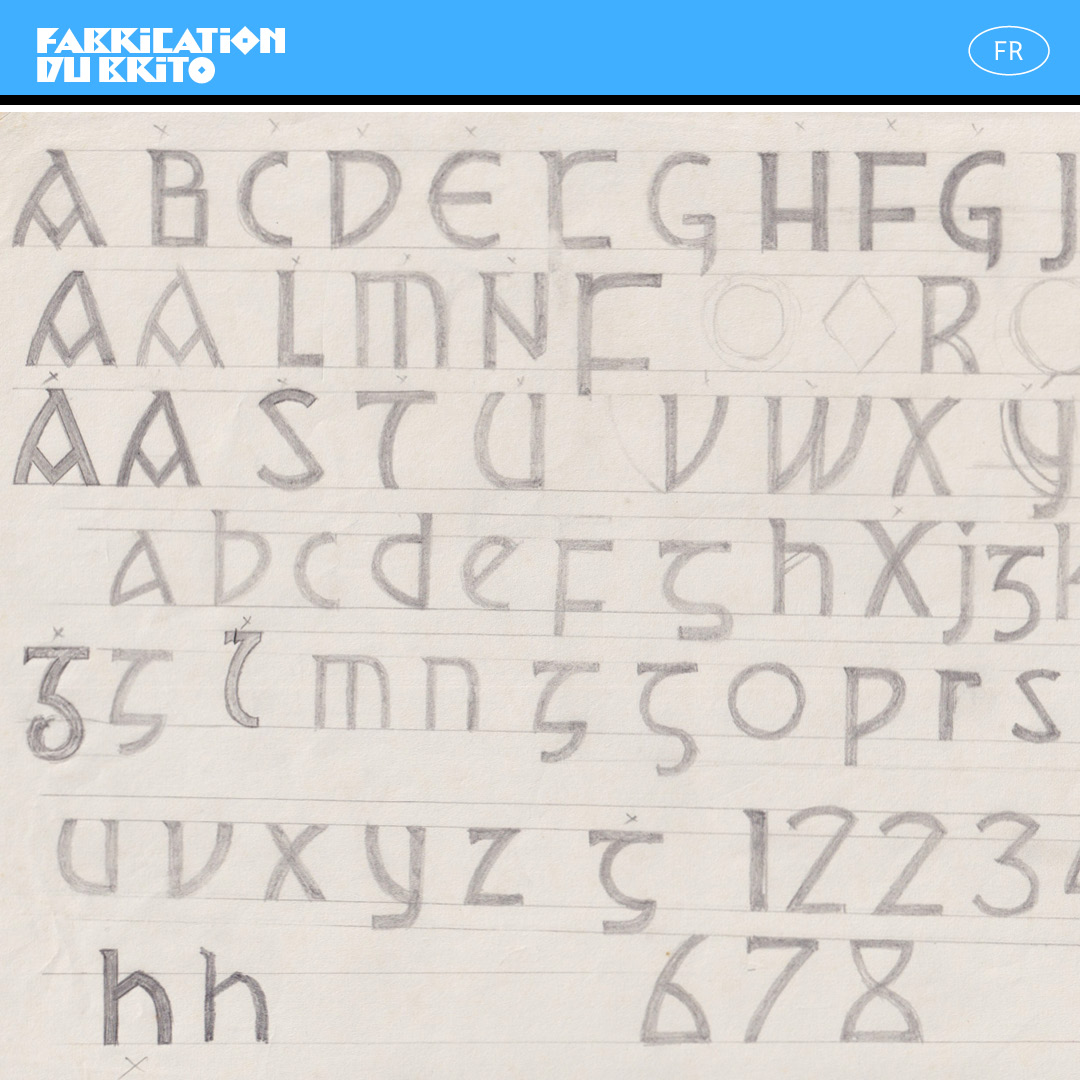 FABRiCATiON
DU BRiTO
FR
A B C D E Ꞅ G H F G J
A A L M N F O ◇ R O
A A S T U V W X y
a b c d e F ζ h X j ʒ k
ʒ ζ ζ m n ζ ζ o p r s
u v x y z ζ 1 2 2 3 4
h h 6 7 8